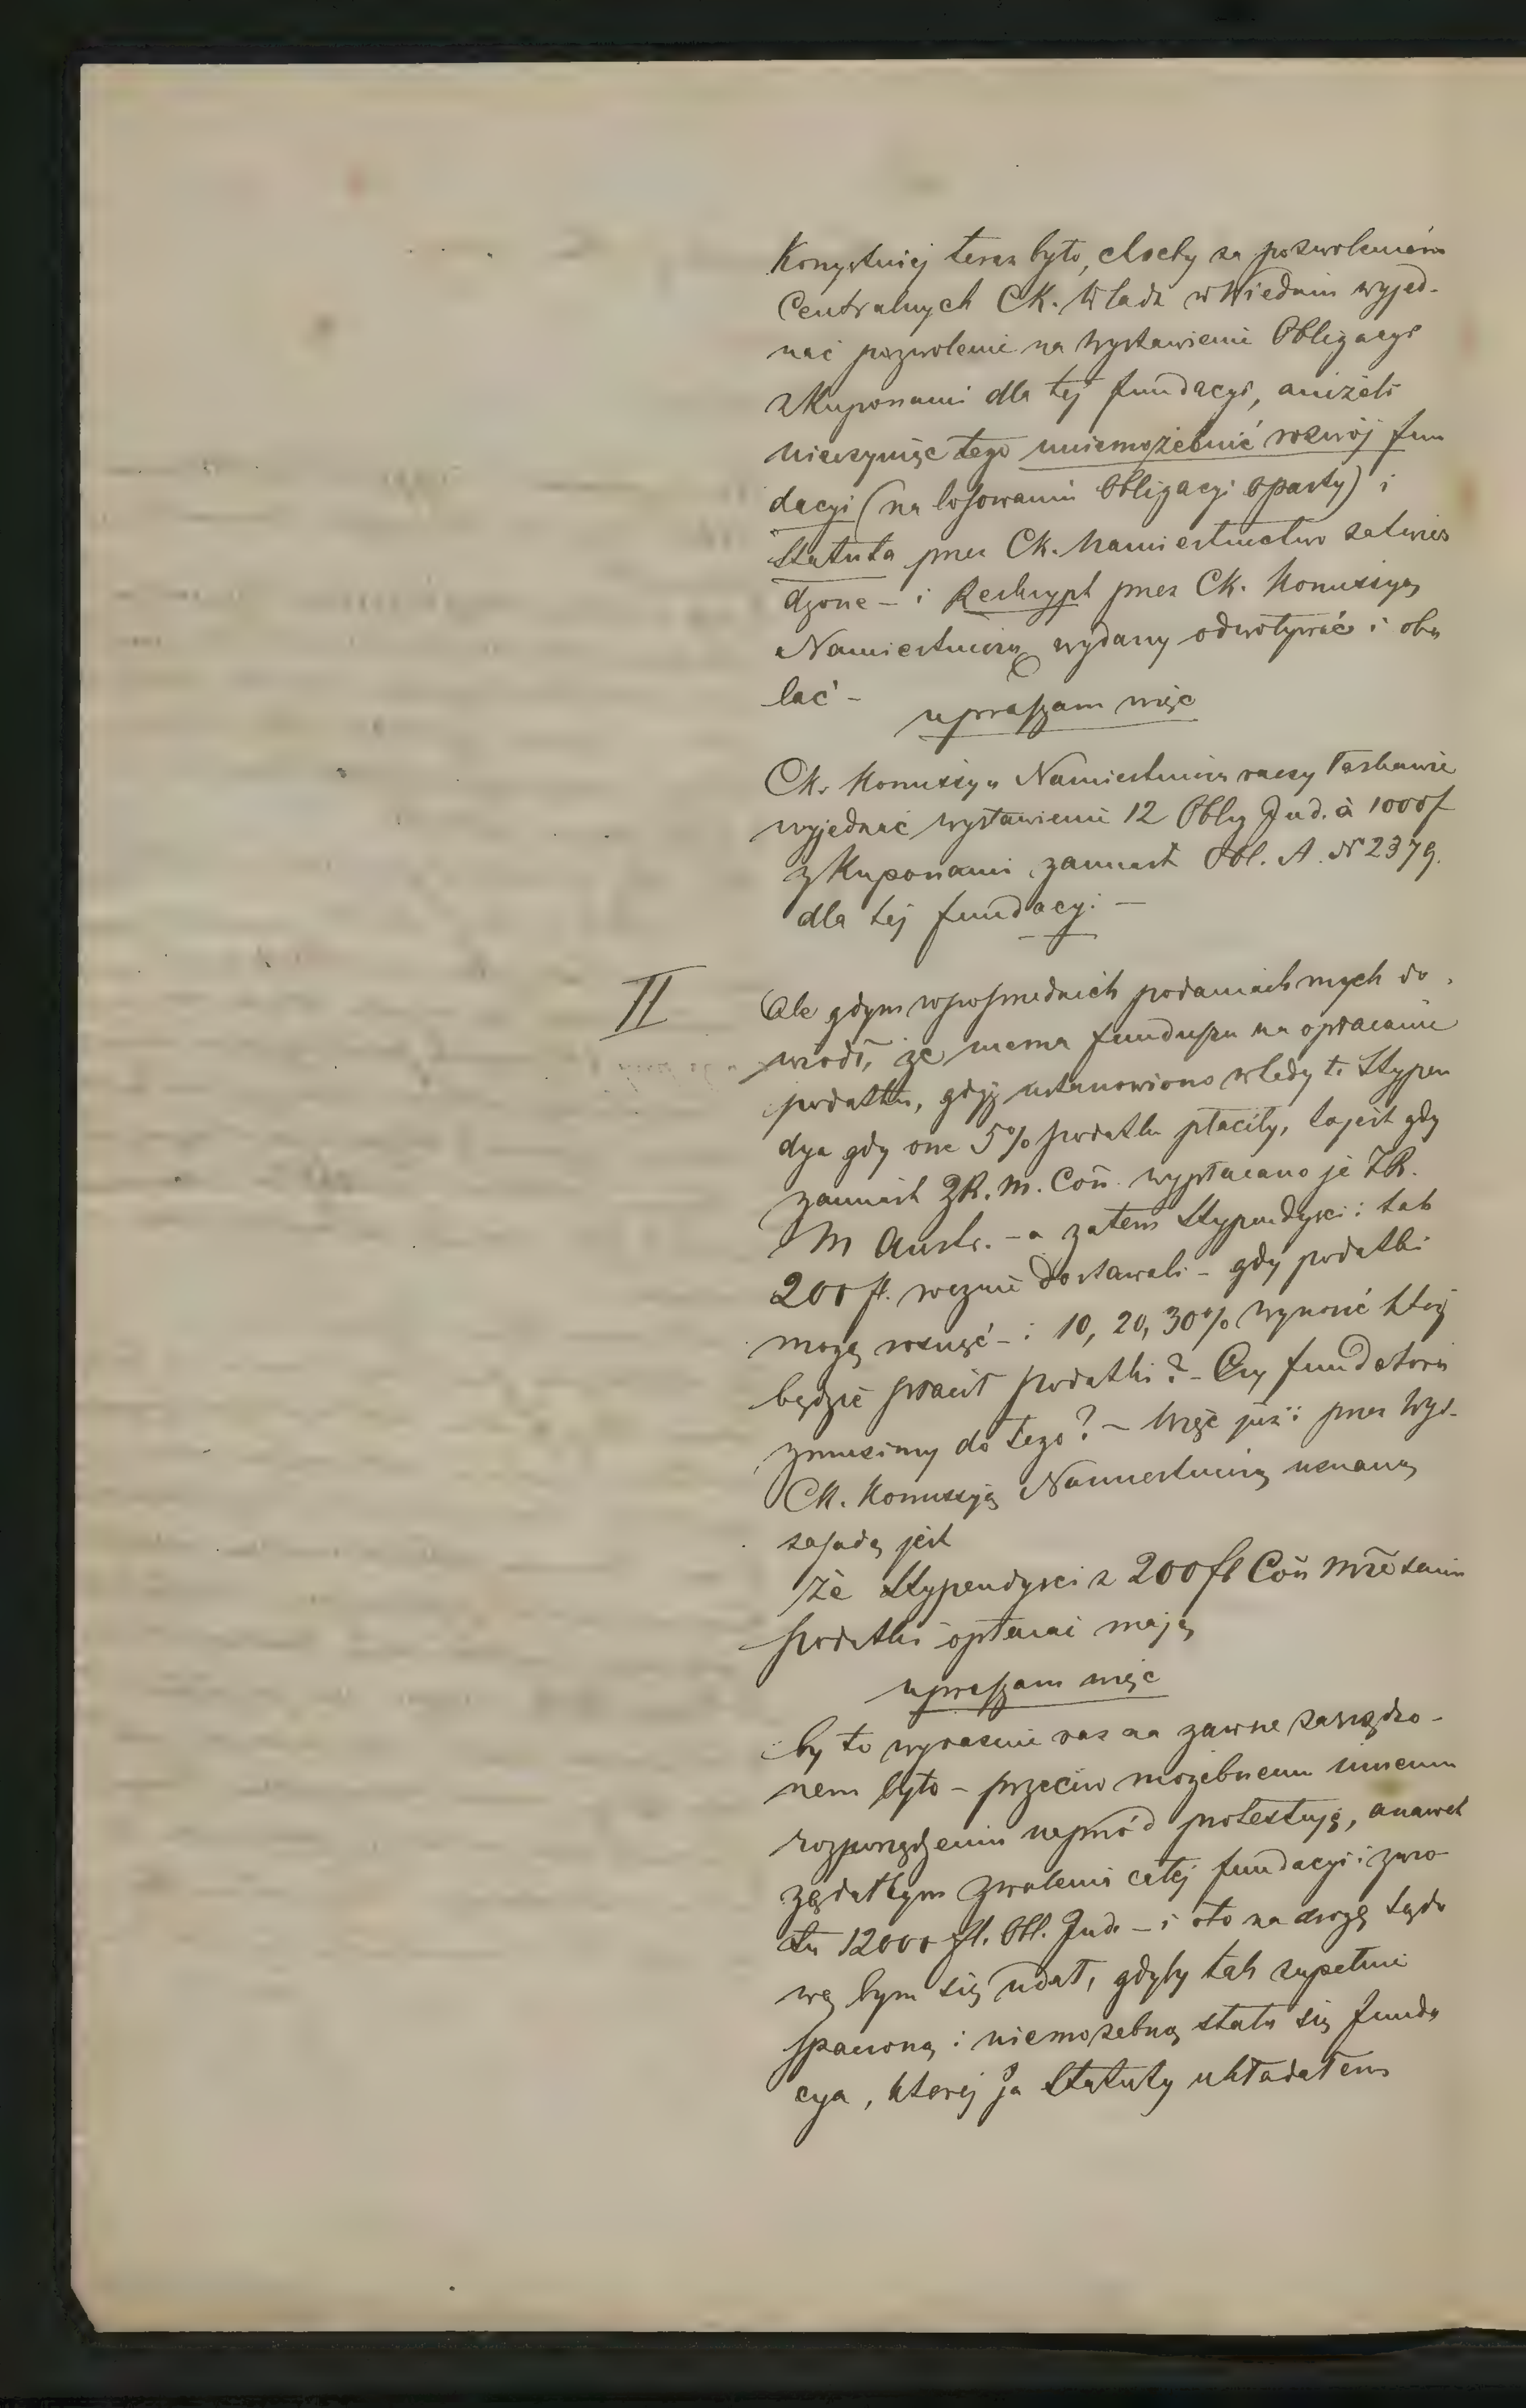 Korzystniej teraz było, choćby za pozwoleniem
Centralnych CK. Władz w Wiedniu wyjed-
nać pozwolenie na wystawienie Obligacyi
z Kuponami dla tej fundacyi, aniżeli
nieczyniąc tego uniemożebnić rozwój fun
dacyi (na losowaniu Obligacyi oparty) i
Statuta przez Ck. Namiestnictwo zatwier
dzone – i Reskrypt przez Ck. Komissyą
Namiestniczą wydany odwoływać i oba
lać –
upraszam więc
Ck. Komissya Namiestnicza raczy łaskawie
wyjednać wystawienie 12 Oblig Ind. à 1000f
z Kuponami zamiast Obl. A. N 2379.
dla tej fundacyi –
II
Ale gdym w poprzednich podaniach mych do
wiódł, że niema funduszu na opłacanie
podatku, gdyż ustanowiono wtedy te Stypen
dya gdy one 5% podatku płaciły, to jest gdy
zamiast ZR. M. Coñ. wypłacano je ZR.
M Austr. – a zatem Stypendyści i tak
200 fl. rocznie dostawali – gdy podatki
mogą rosnąć – i 10, 20, 30% wynosić któż
będzie płacił podatki? – Czy fundatora
zmusimy do tego? – Więc już i przez Wys.
CK. Komissyją Namiestniczą uznaną
zasadą jest
że Stypendyści z 200 fl Coñ Mze sami
podatki opłacać mają
upraszam więc
by to wyraźnie raz na zawsze zarządzo-
nem było – przeciw możebnemu innemu
rozporządzeniu naprzód protestuję, a nawet
żądałbym zwalenia całej fundacyi i zwro
tu 12000 fl. Obl. Ind. – i oto na drogę sądo
wą bym się udał, gdyby tak zupełnie
spaczoną i niemożebną stała się funda
cya, której ja Statuty układałem